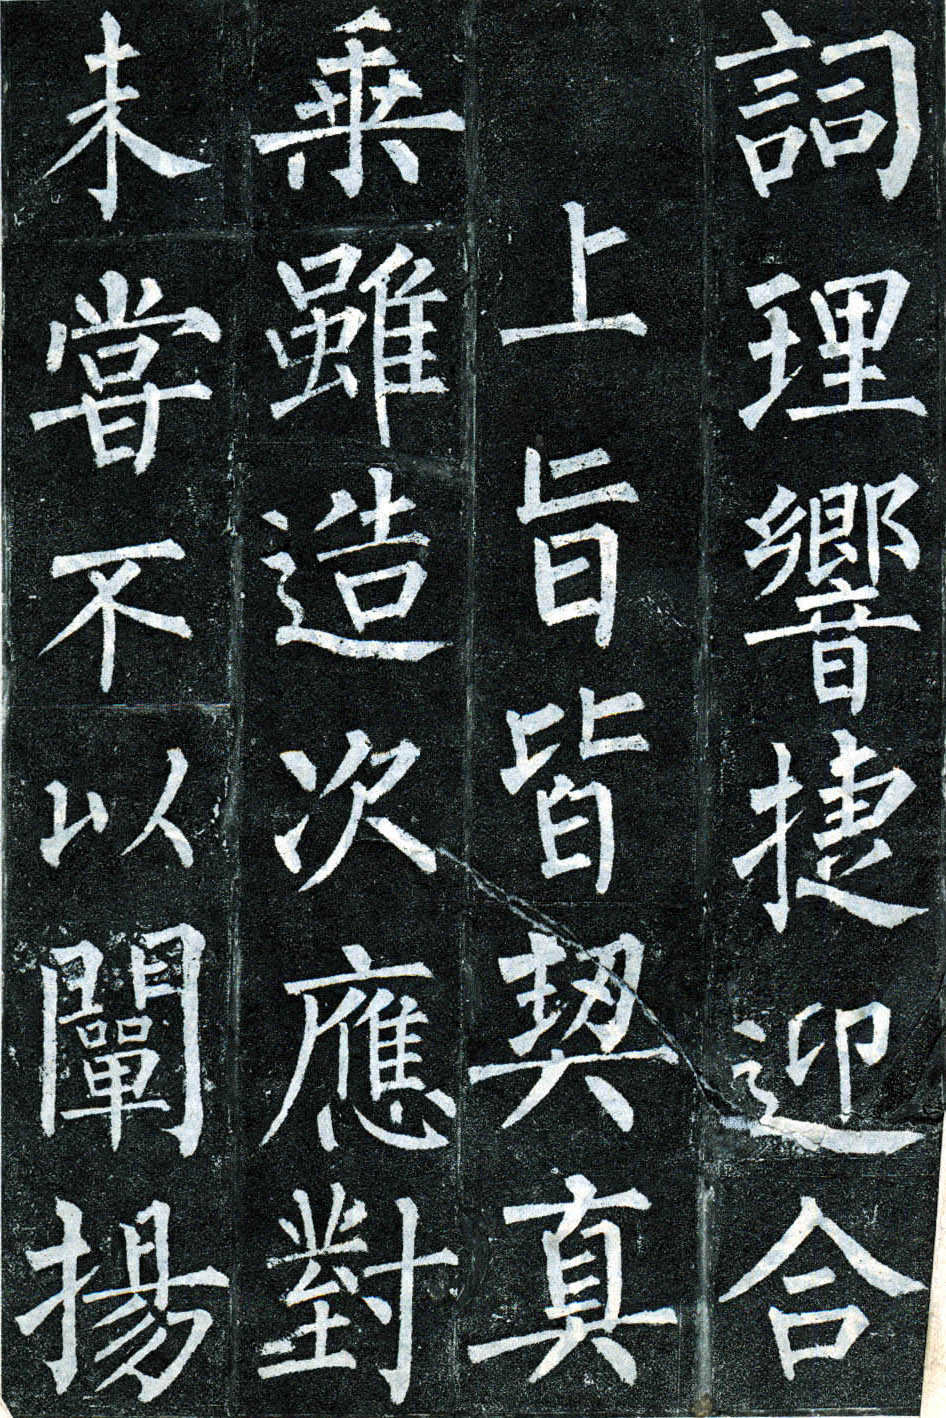 詞理響捷迎合
上旨皆契真
乗雖造次應對
未嘗不以闡揚